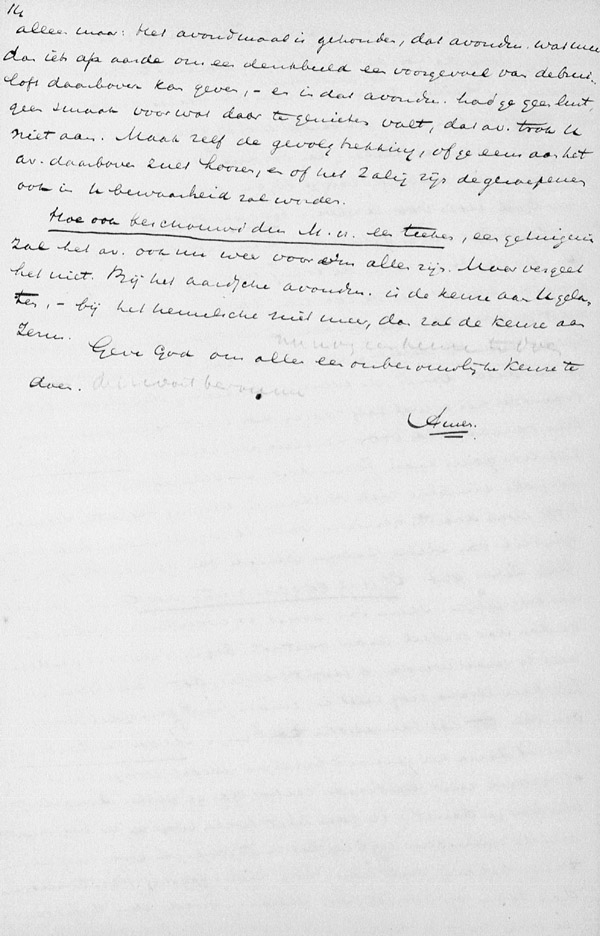 14
alleen maar: Het avondmaal is gehouden, dat avondm. wat meer
dan iets op aarde om een denkbeeld een voorgevoel van de brui-
loft daarboven kan geven, – en in dat avondm. had ge geen lust,
geen smaak voor wat daar te genieten valt, dat av. trok U
niet aan. Maak zelf de gevolgtrekking, of ge eens aan het
av. daarboven zult hooren, en of het Zalig zijn de geroepenen
ook in U bewaarheid zal worden.
Hoe ook beschouwd dus M. H. een teeken, een getuigenis
zal het av. ook nu weer voor ons allen zijn. Maar vergeet
het niet. Bij het aardsche avondm. is de keuze aan U gela-
ten, – bij het hemelsche niet meer, dan zal de keuze aan
Hem.
Geve God ons allen een onberouwelijke keuze te
doen.
Amen.